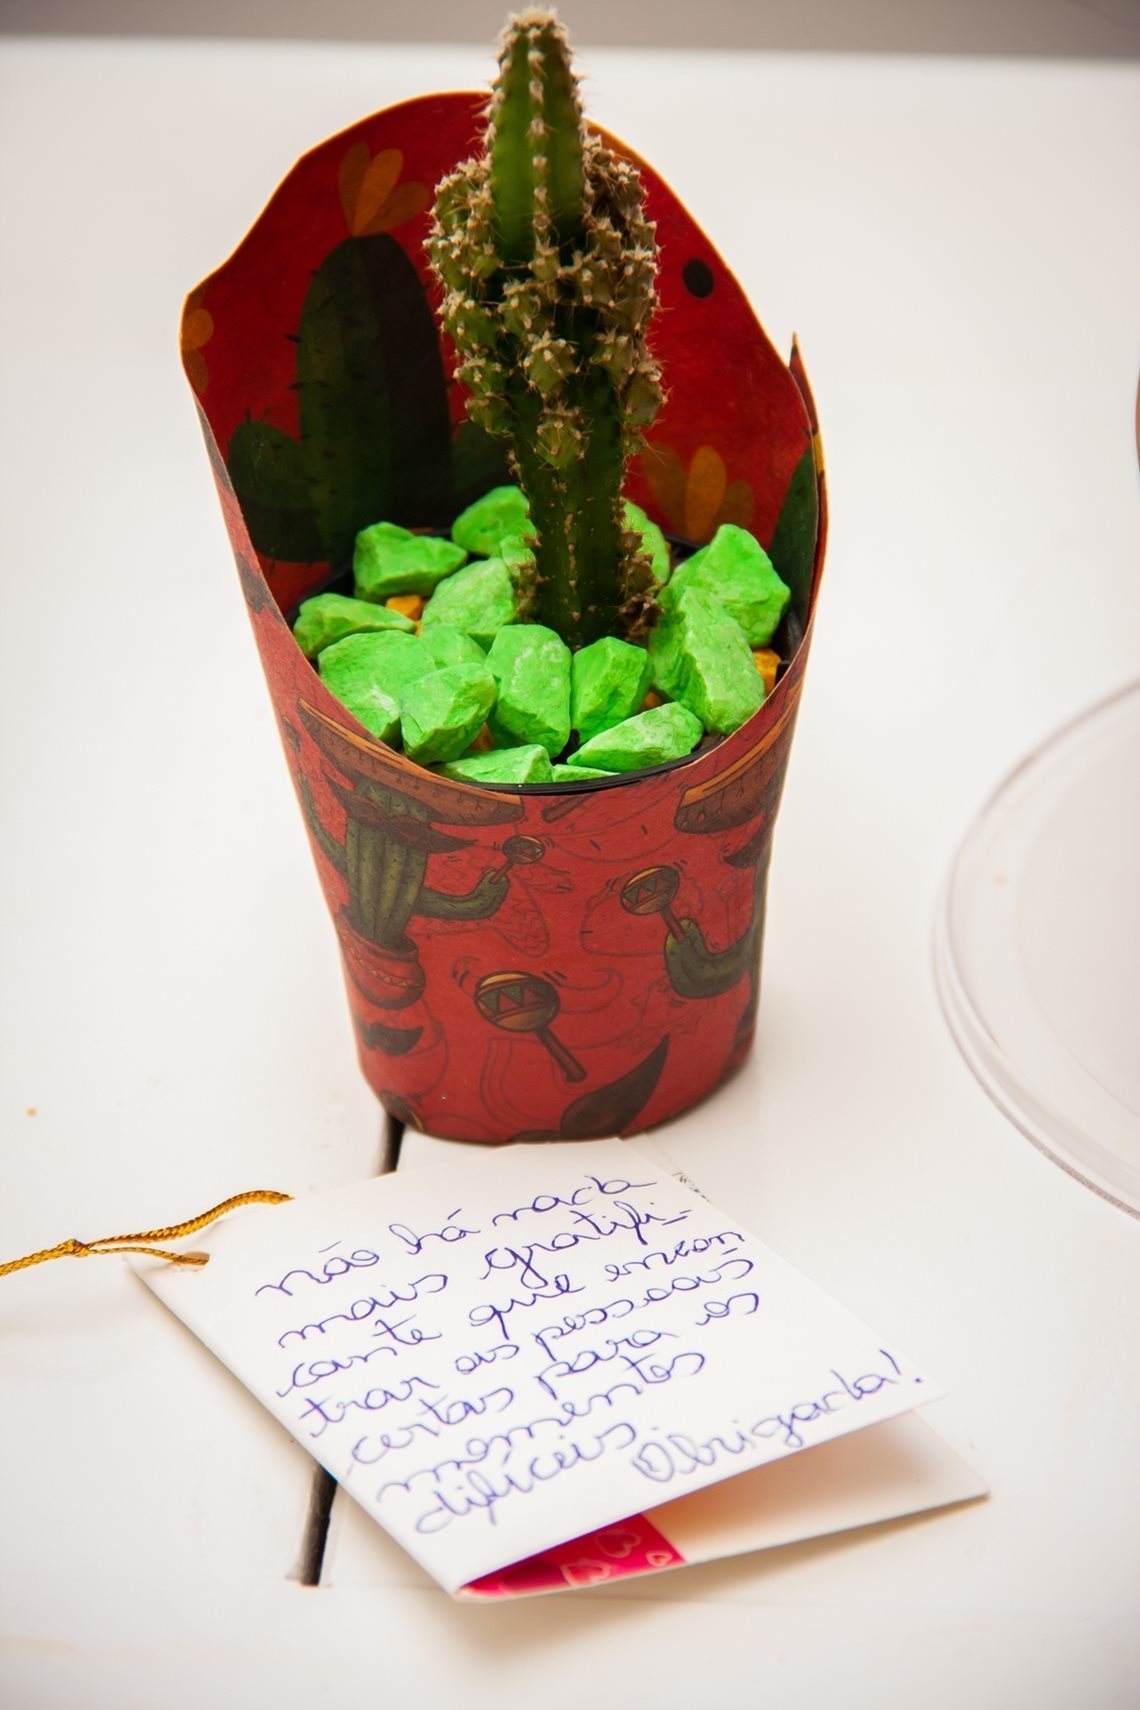 não há nada
mais gratifi-
cante que encon
trar as pessoas
certas para os
momentos
difíceis.
Obrigada!